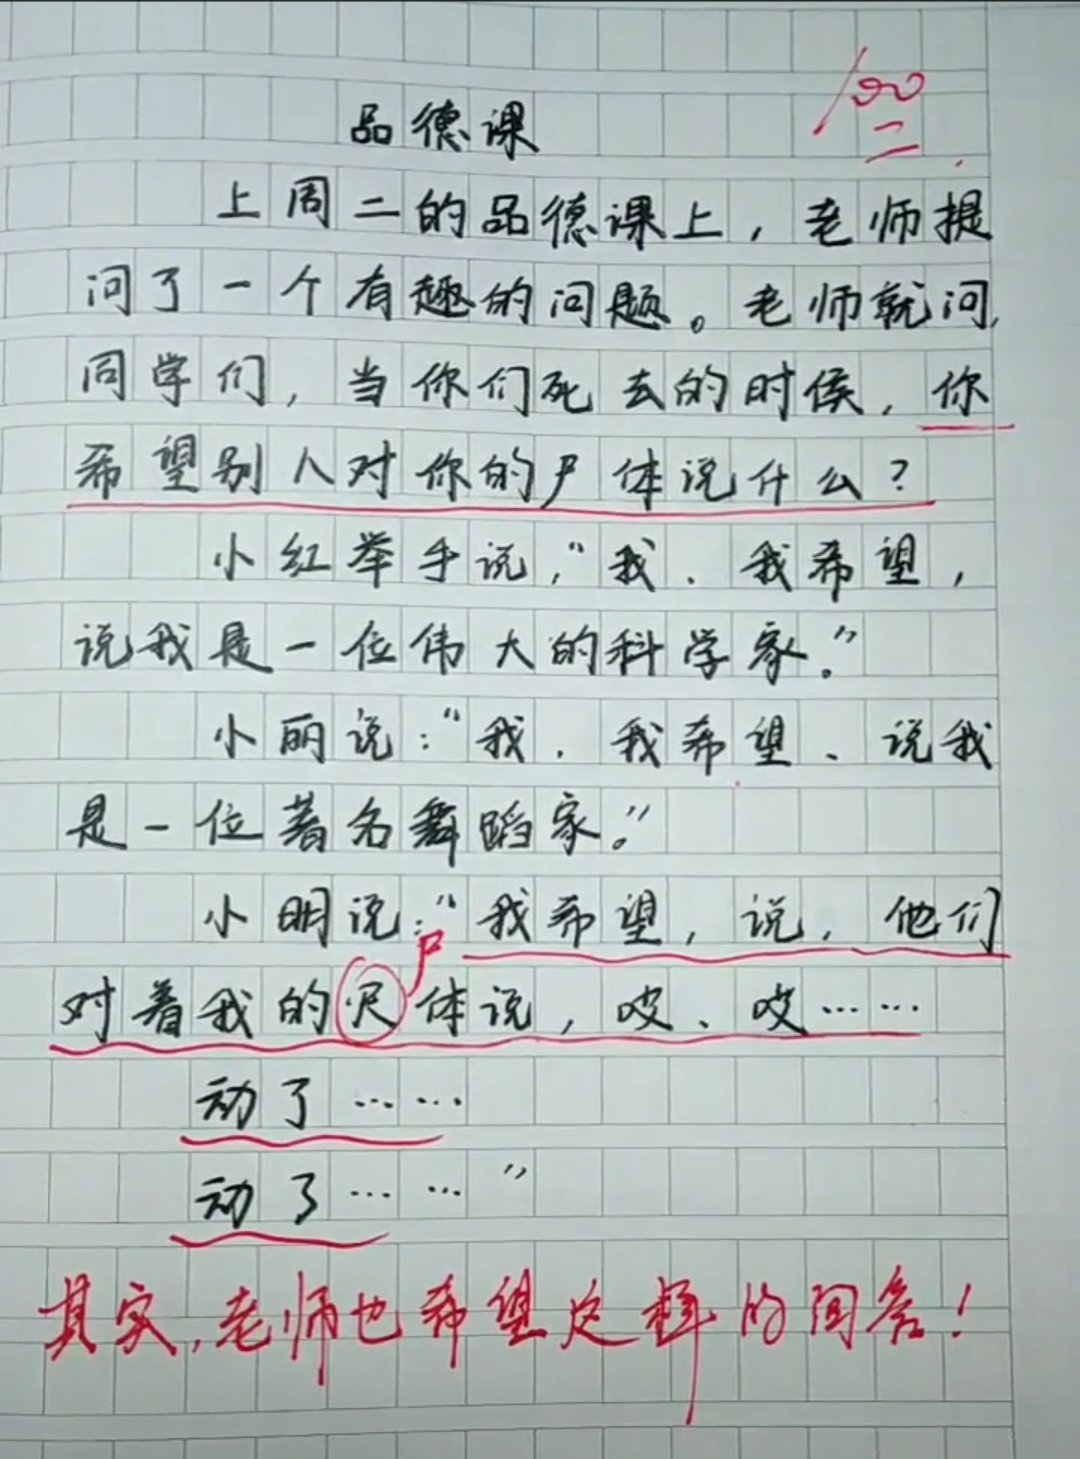 100
品德课
上周二的品德课上，老师提
问了一个有趣的问题。老师就问，
同学们，当你们死去的时候，你
希望别人对你的尸体说什么？
小红举手说，“我、我希望，
说我是一位伟大的科学家。”
小丽说：“我，我希望、说我
是一位著名舞蹈家。”
小明说：“我希望，说，他们
尸
对着我的尺体说，哎、哎……
动了……
动了……”
其实，老师也希望这样的回答！